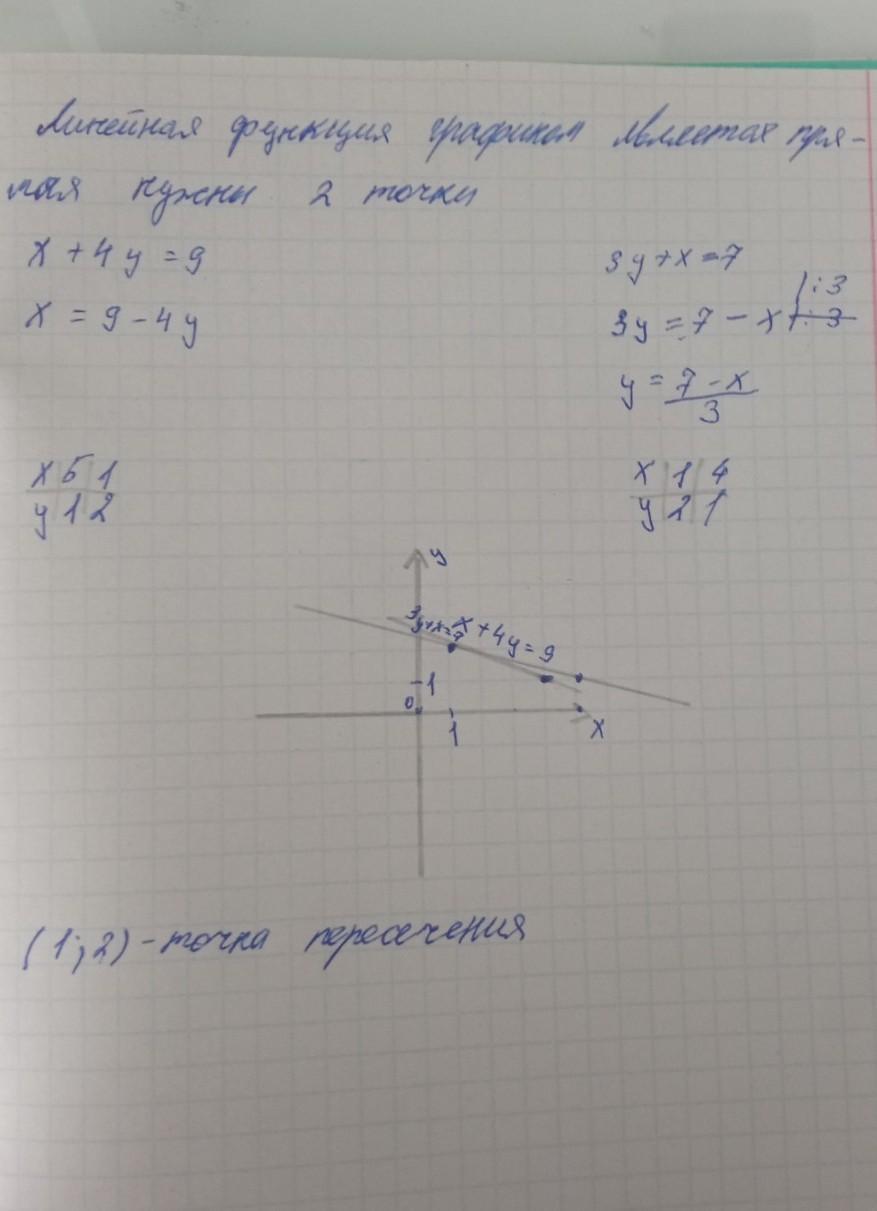 Линейная функция графиком является пря-
мая нужны 2 точки
x + 4y = 9
3y + x = 7
x = 9 - 4y
3y = 7 - x |:3
y = 7 - x
3
x 5 1
y 1 2
x 1 4
y 2 1
y
3y+x=7
x + 4y = 9
1
0
1
x
(1;2) - точка пересечения